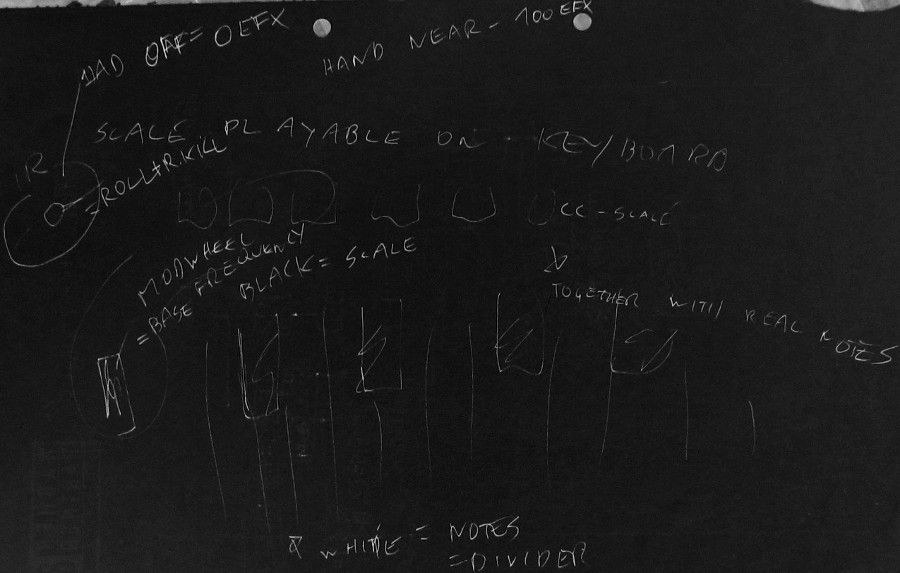 HAND OFF= 0 EFX
HAND NEAR - 100 EFX
SCALE PLAYABLE ON KEYBOARD
IR
=ROLL+R.KILL
CC-SCALE
MODWHEEL
=BASE FREQUENCY
BLACK= SCALE
TOGETHER WITH REAL NOTES
WHITE = NOTES
=DIVIDER